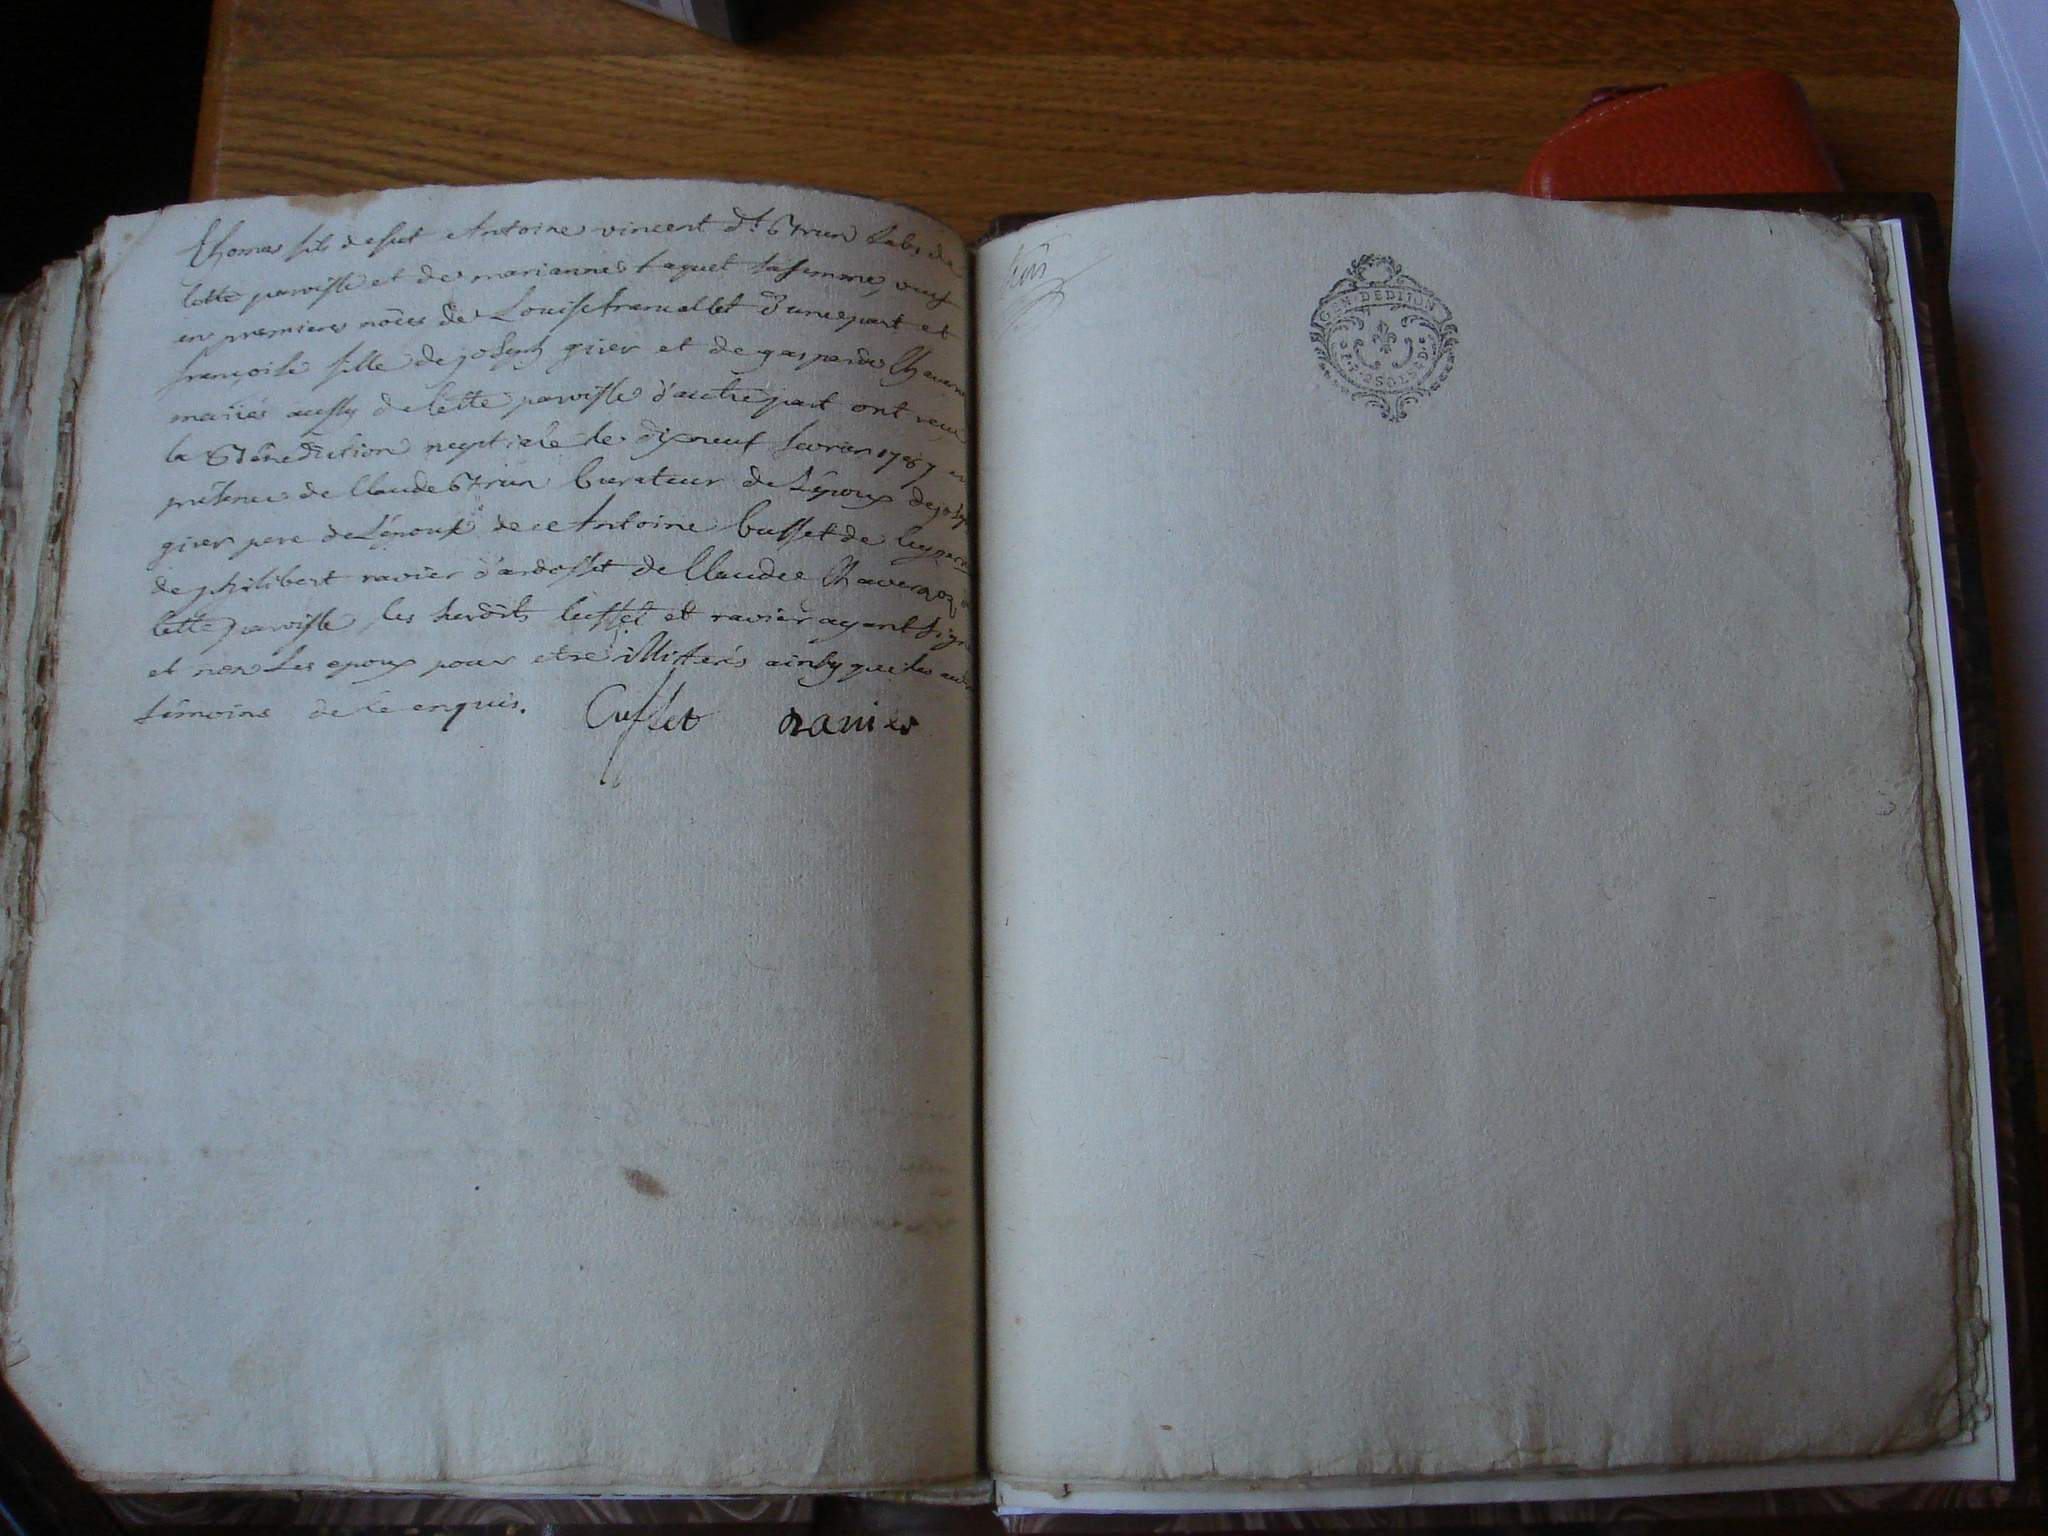 thomas fils de fut Antoine vincent dt Brun lab. de
cette paroisse et de marianne taquet sa femme, veuf
en premieres noces de Louise francallet d'une part et
françoise fille de joseph giver et de gasparde
mariés aussy de cette paroisse d'autre part ont recu
la Bénédiction nuptiale le dixneuf fevrier 1767 en
présence de Claude Brun curateur de l'époux de joseph
giver pere de l'épouse de Antoine cusset de
de philibert ravier d'ardosset de Claude
cette paroisse les susdits cusset et ravier ayant signé
et non les epoux pour etre illiterés ainsy que les
témoins de ce enquis. Cusset ravier
GEN. DE DIJON